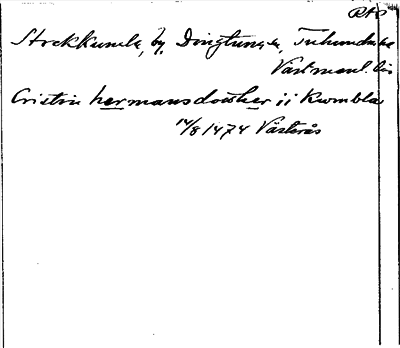 Rt0
Stockkumla, by, Dingtuna sn, Tuhundra hd
Västmanl. län
Cristin hermansdotther ii Kwmbla
14/8 1474 Västerås